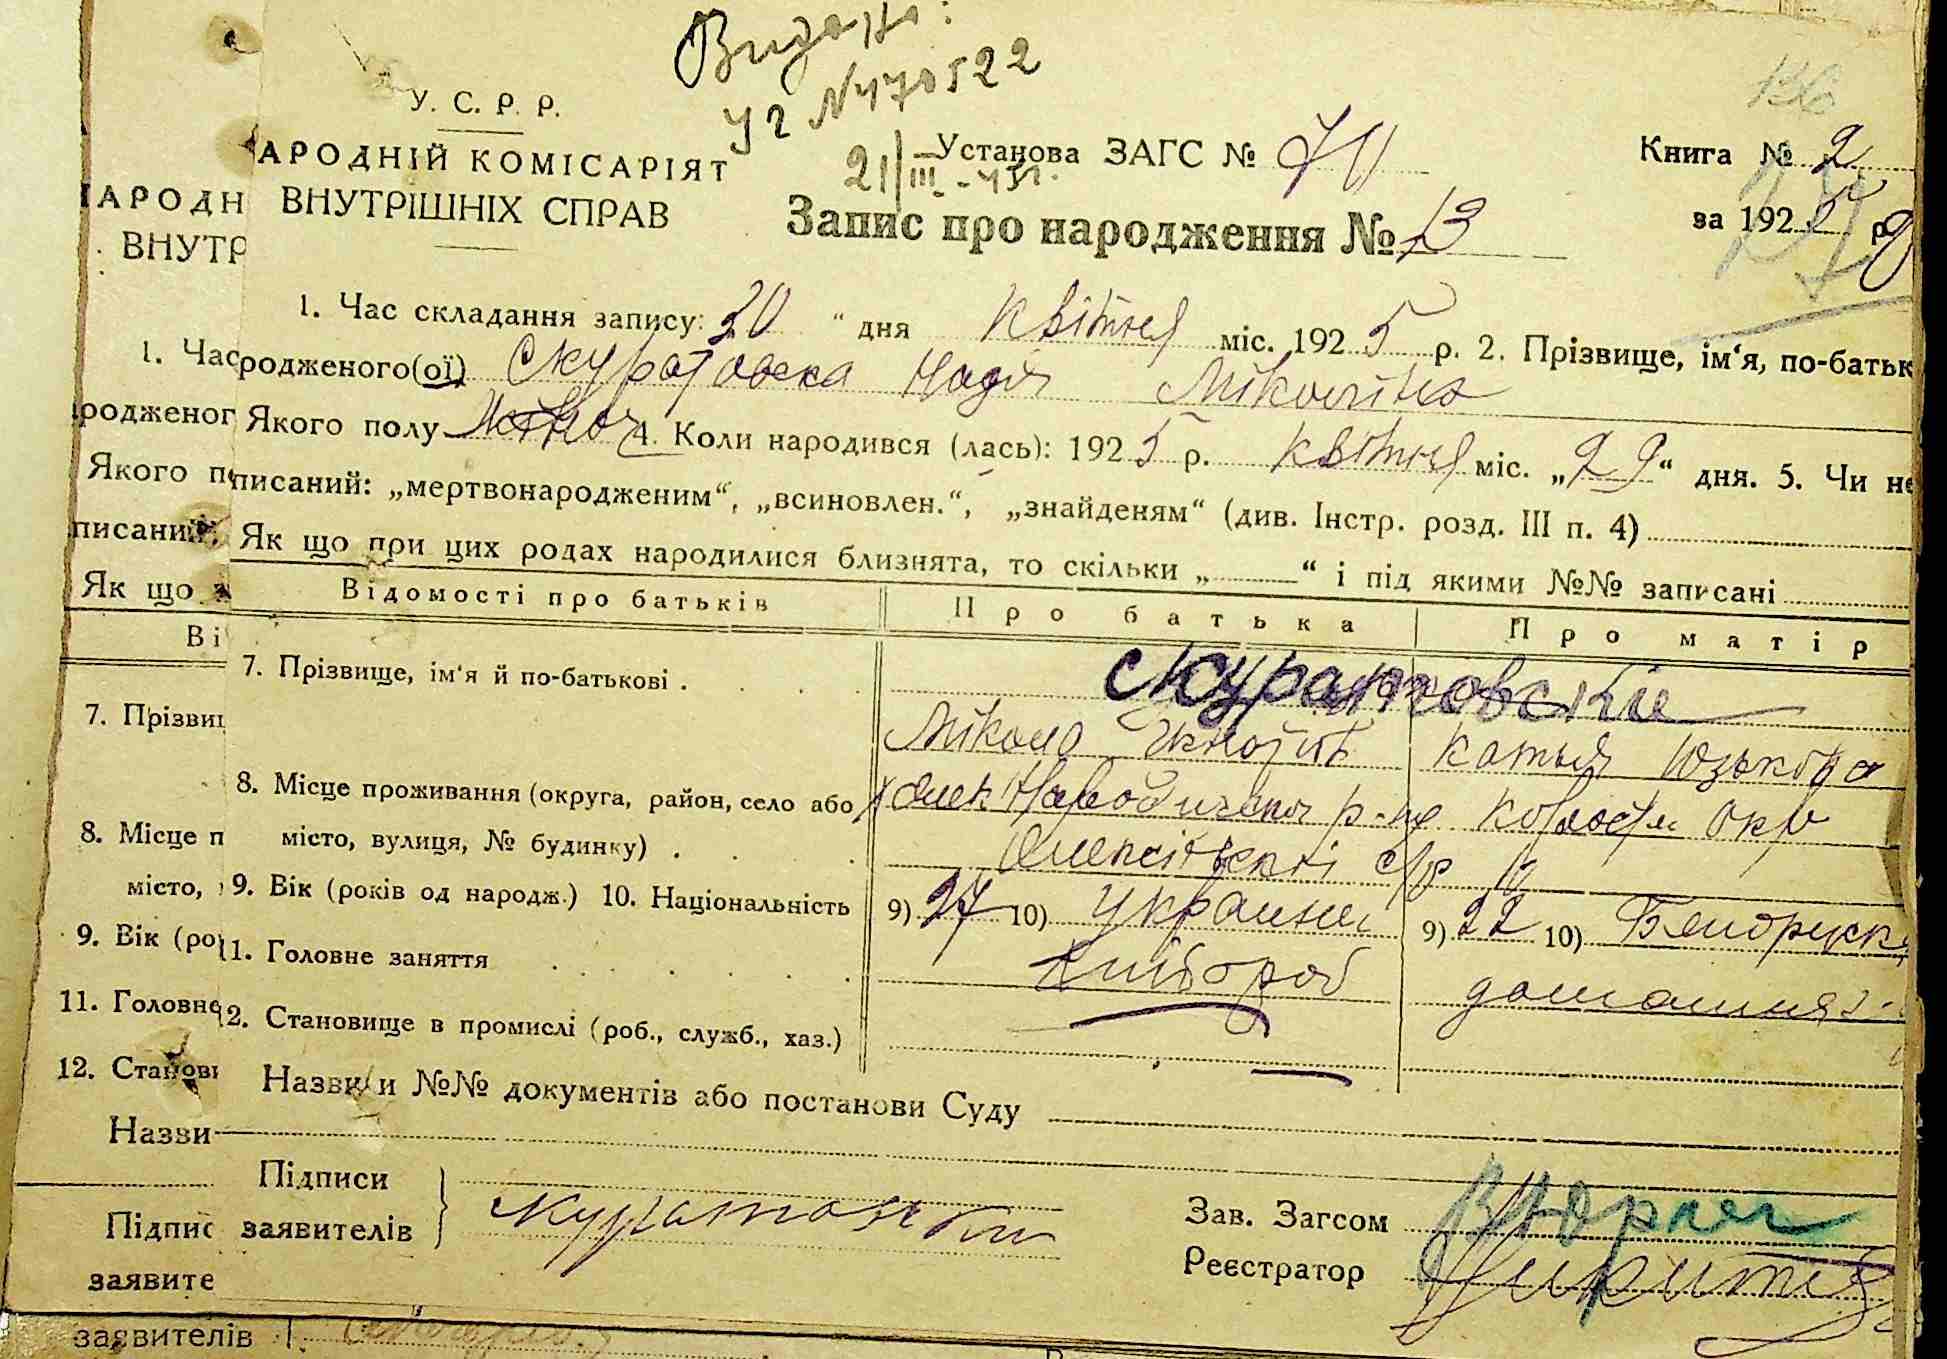 Видано:
У. С. Р. Р.
АРОДНІЙ КОМІСАРІЯТ
ВНУТРІШНІХ СПРАВ
21/III
Установа ЗАГС №
Книга № 2
Запис про народження № 13
за 1925 р.
1. Час складання запису: 30 " дня квітня міс. 1925 р. 2. Прізвище, ім'я, по-батьк
родженого(ої) Скуратовска Надія
Якого полу 4. Коли народився (лась): 1925 р. квітня міс. „29“ дня. 5. Чи не
писаний: „мертвонародженим“, „всиновлен.“, „знайденям“ (див. Інстр. розд. III п. 4)
Як що при цих родах народилися близнята, то скільки „ “ і під якими №№ записані
Відомості про батьків Про батька Про матір
7. Прізвище, ім'я й по-батькові . Скуратовскіе
Мікола Катья
8. Місце проживання (округа, район, село або
місто, вулиця, № будинку) .
9. Вік (років од народж.) 10. Національність 9) 27 10) Украинец 9) 22 10) Белорусск
11. Головне заняття Хлібороб домашняя
12. Становище в промислі (роб., служб., хаз.)
Назви и №№ документів або постанови Суду
Підписи
заявителів Скуратовски
Зав. Загсом
Реєстратор
АРОДН
ВНУТР
1. Час
родженог
Якого п
писаний:
Як що
Ві
7. Прізви
8. Місце п
місто,
9. Вік (ро
11. Головне
12. Станови
Назви
Підпис
заявите
заявителів